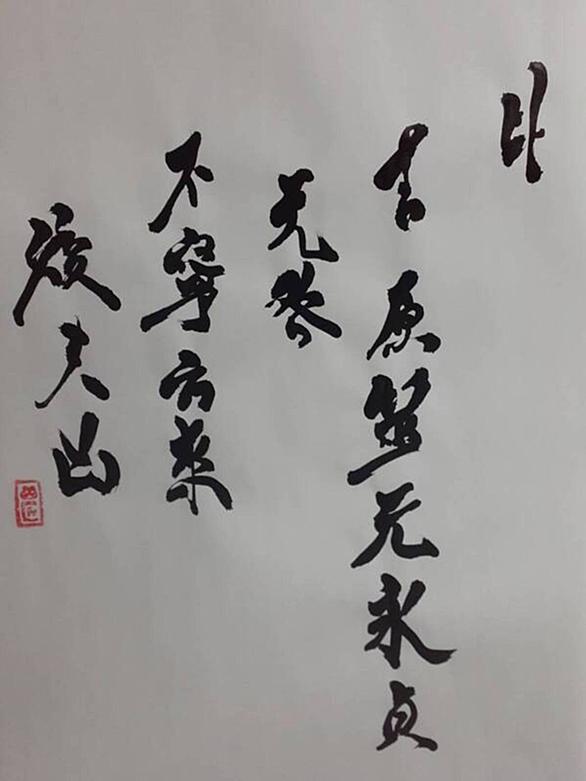 比
吉原筮元永貞
无咎
不寧方來
後夫凶